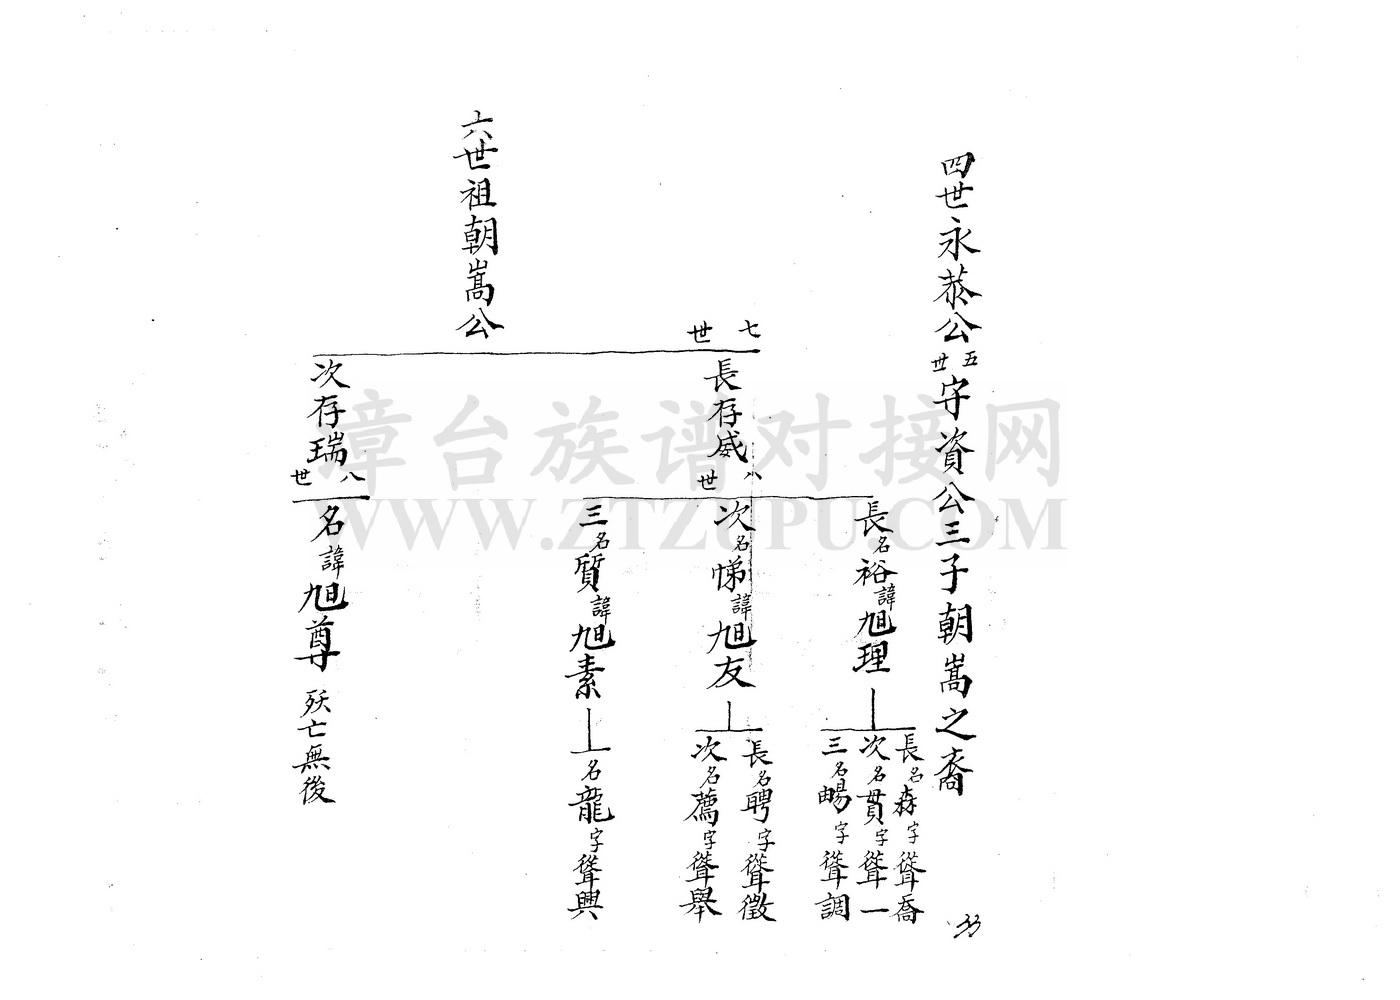 四世永恭公五世守資公三子朝嵩之裔
六世祖朝嵩公
七世
長存威
八世
長名裕諱旭理
長名森字聳喬
次名貫字聳一
三名暢字聳調
次名悌諱旭友
長名聘字聳徵
次名薦字聳舉
三名質諱旭素
名龍字聳興
次存瑞
八世
名諱旭尊 殀亡無後
33
章台族谱对接网
WWW.ZTZUPU.COM